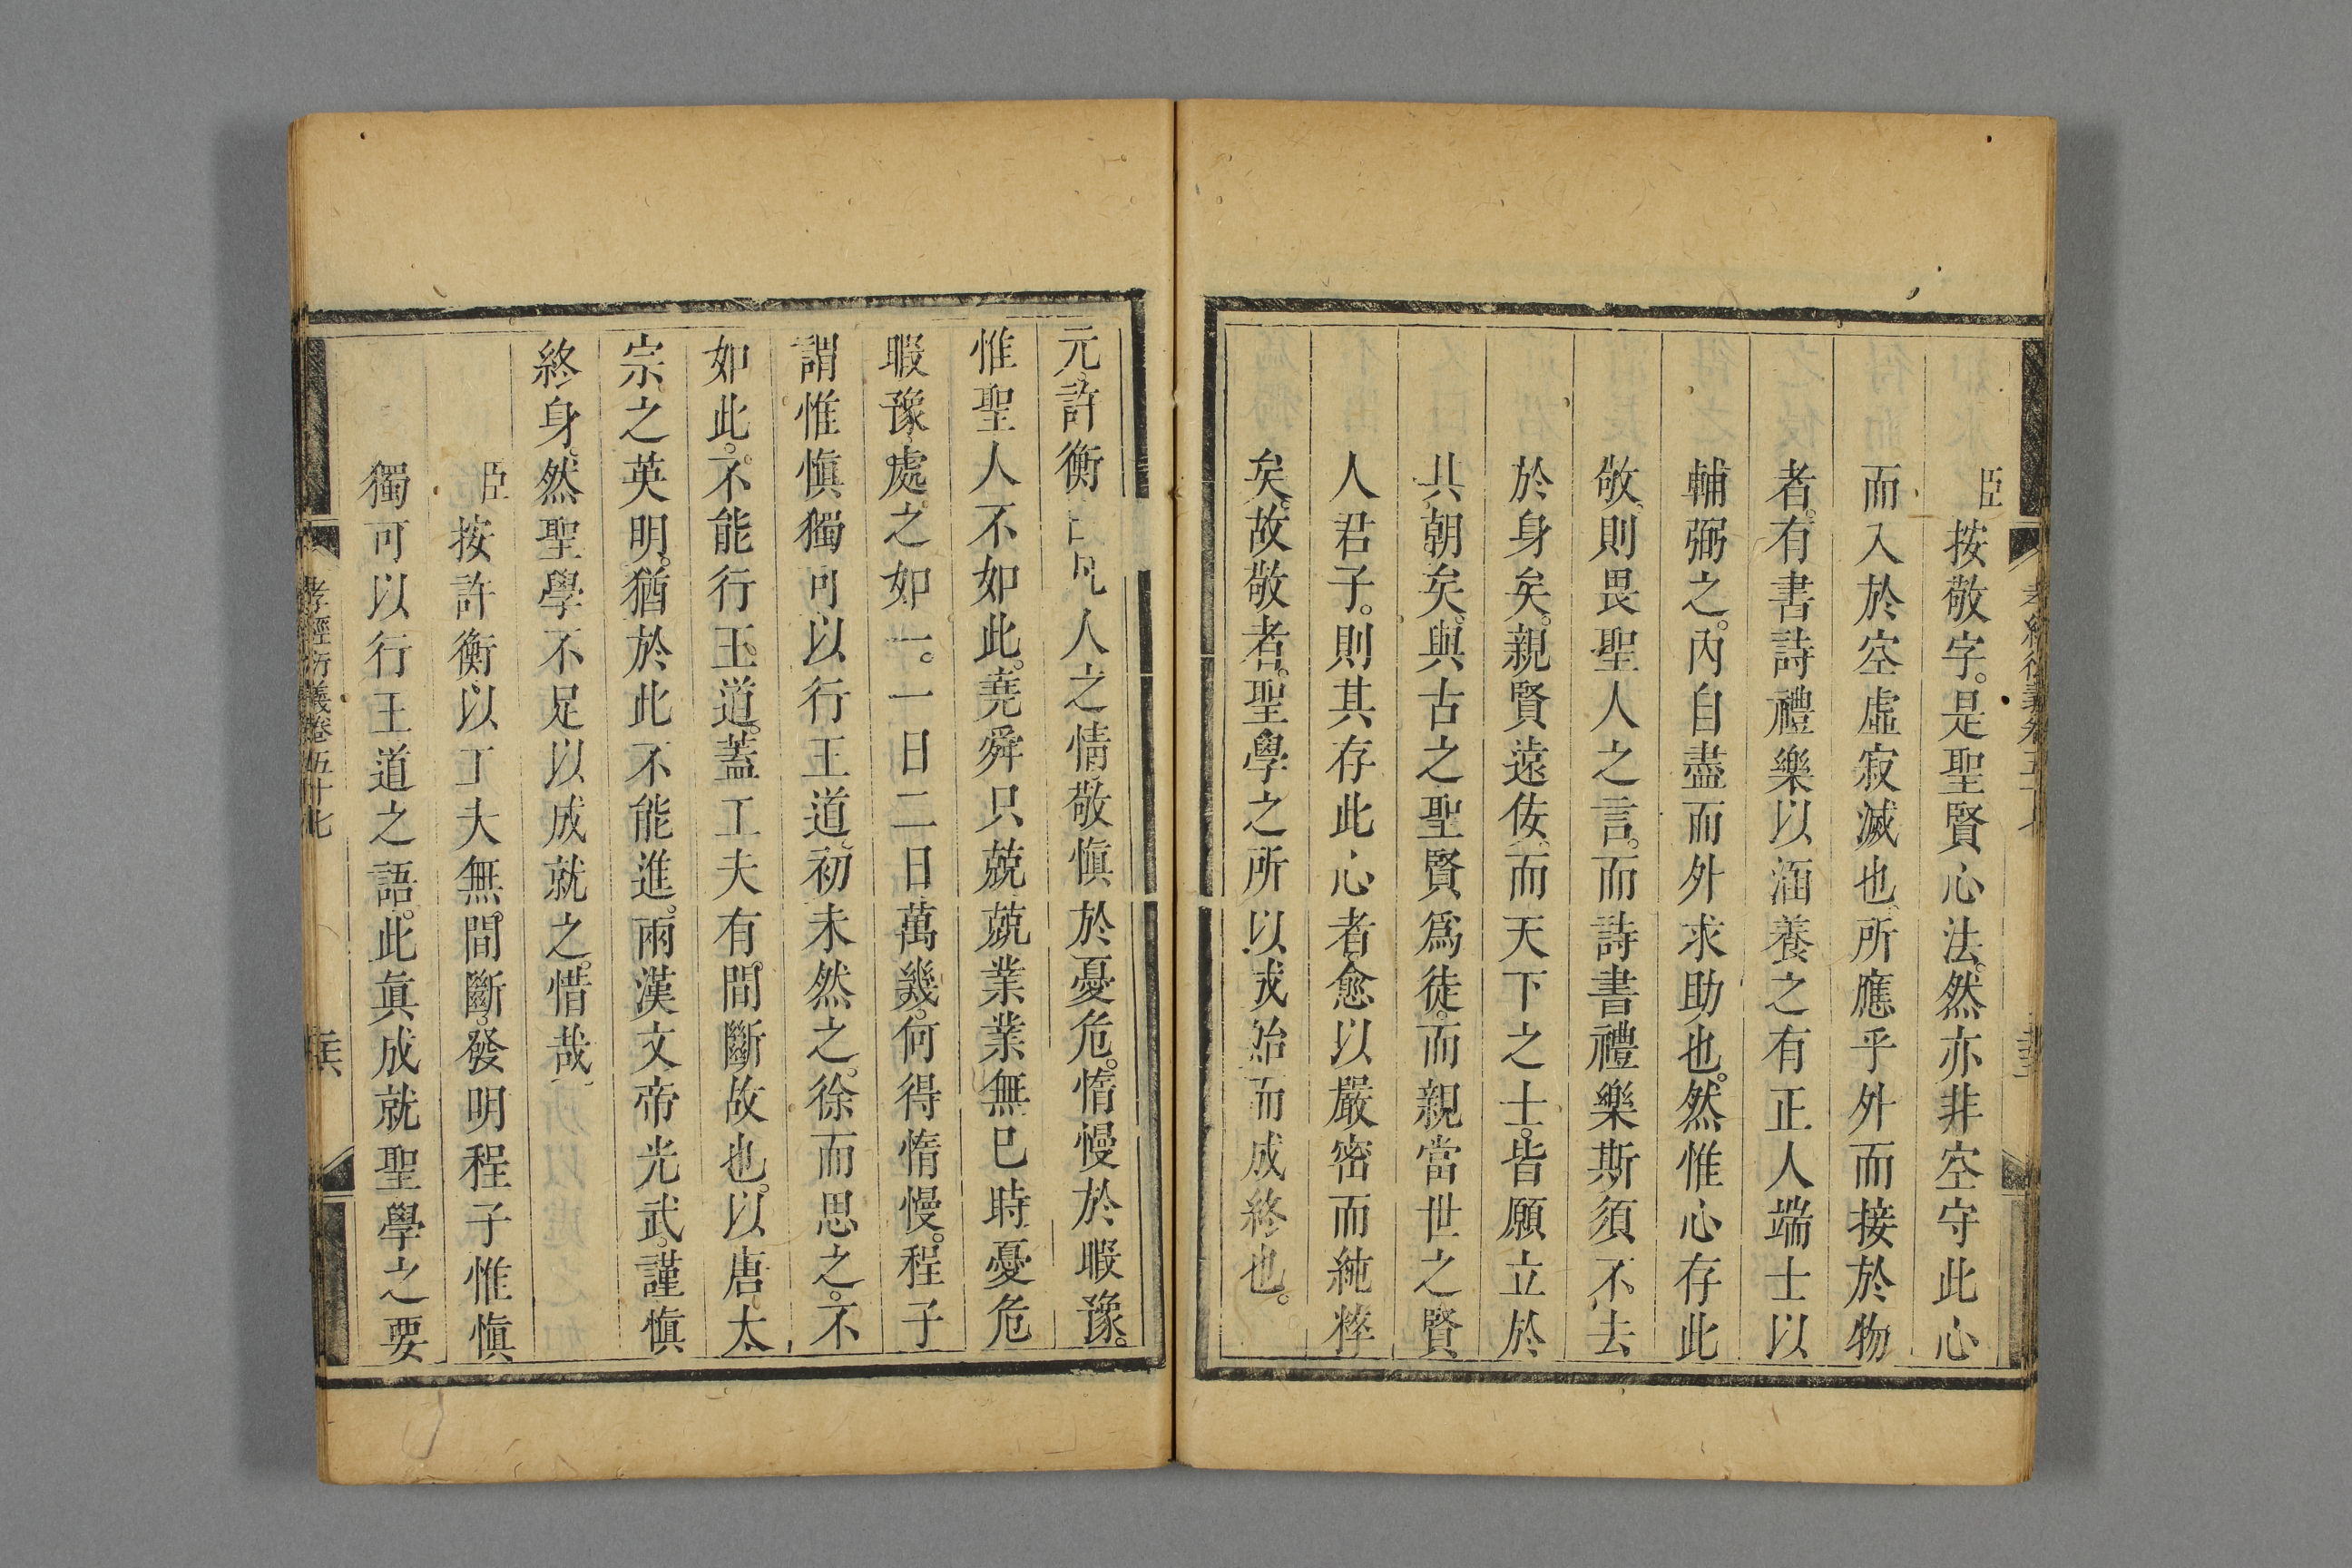 臣按敬字。是聖賢心法。然亦非空守此心
而入於空虛寂滅也。所應乎外而接於物
者。有書詩禮樂以涵養之有正人端士以
輔弼之。內自盡而外求助也。然惟心存此
敬。則畏聖人之言。而詩書禮樂斯須不去
於身矣。親賢遠佞、而天下之士。皆願立於
共朝矣。與古之聖賢爲徒。而親當世之賢
人君子。則其存此心者。愈以嚴密而純粹
矣。故敬者。聖學之所以成始而成終也。
元許衡曰凡人之情敬慎於憂危。惰慢於暇豫。
惟聖人不如此。堯舜只兢兢業業無已時憂危
暇豫。處之如一。一日二日萬幾。何得惰慢。程子
謂惟慎獨可以行王道。初未然之。徐而思之。不
如此。不能行王道。蓋工夫有間斷故也。以唐太
宗之英明。猶於此不能進。兩漢文帝光武。謹慎
終身。然聖學不足以成就之。惜哉
臣按許衡以工夫無間斷。發明程子惟慎
獨可以行王道之語。此眞成就聖學之要
孝經衍義卷五十七